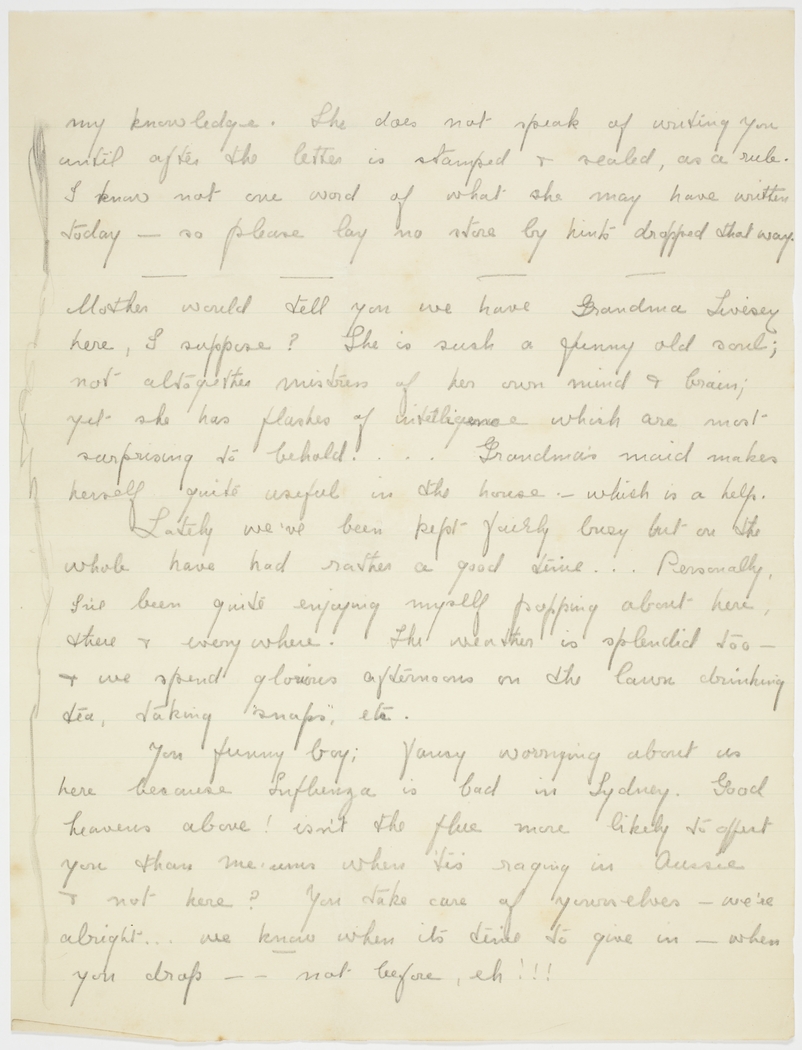 my knowledge. She does not speak of writing you
until after the letter is stamped & sealed, as a rule.
I know not one word of what she may have written
today — so please lay no store by hints dropped that way.
Mother would tell you we have Grandma Livesey
here, I suppose? She is such a funny old soul;
not altogether mistress of her own mind & brain;
yet she has flashes of intelligence which are most
surprising to behold. . . . Grandma's maid makes
herself quite useful in the house — which is a help.
Lately we've been kept fairly busy but on the
whole have had rather a good time... Personally,
I've been quite enjoying myself popping about here,
there & everywhere. The weather is splendid too —
& we spend glorious afternoons on the lawn drinking
tea, taking "snaps", etc.
You funny boy; fancy worrying about us
here because Influenza is bad in Sydney. Good
heavens above! isn't the flue more likely to affect
you than me-ums when 'tis raging in Aussie
& not here? You take care of yourselves — we're
alright... we know when its time to give in — when
you drop — — not before, eh!!!